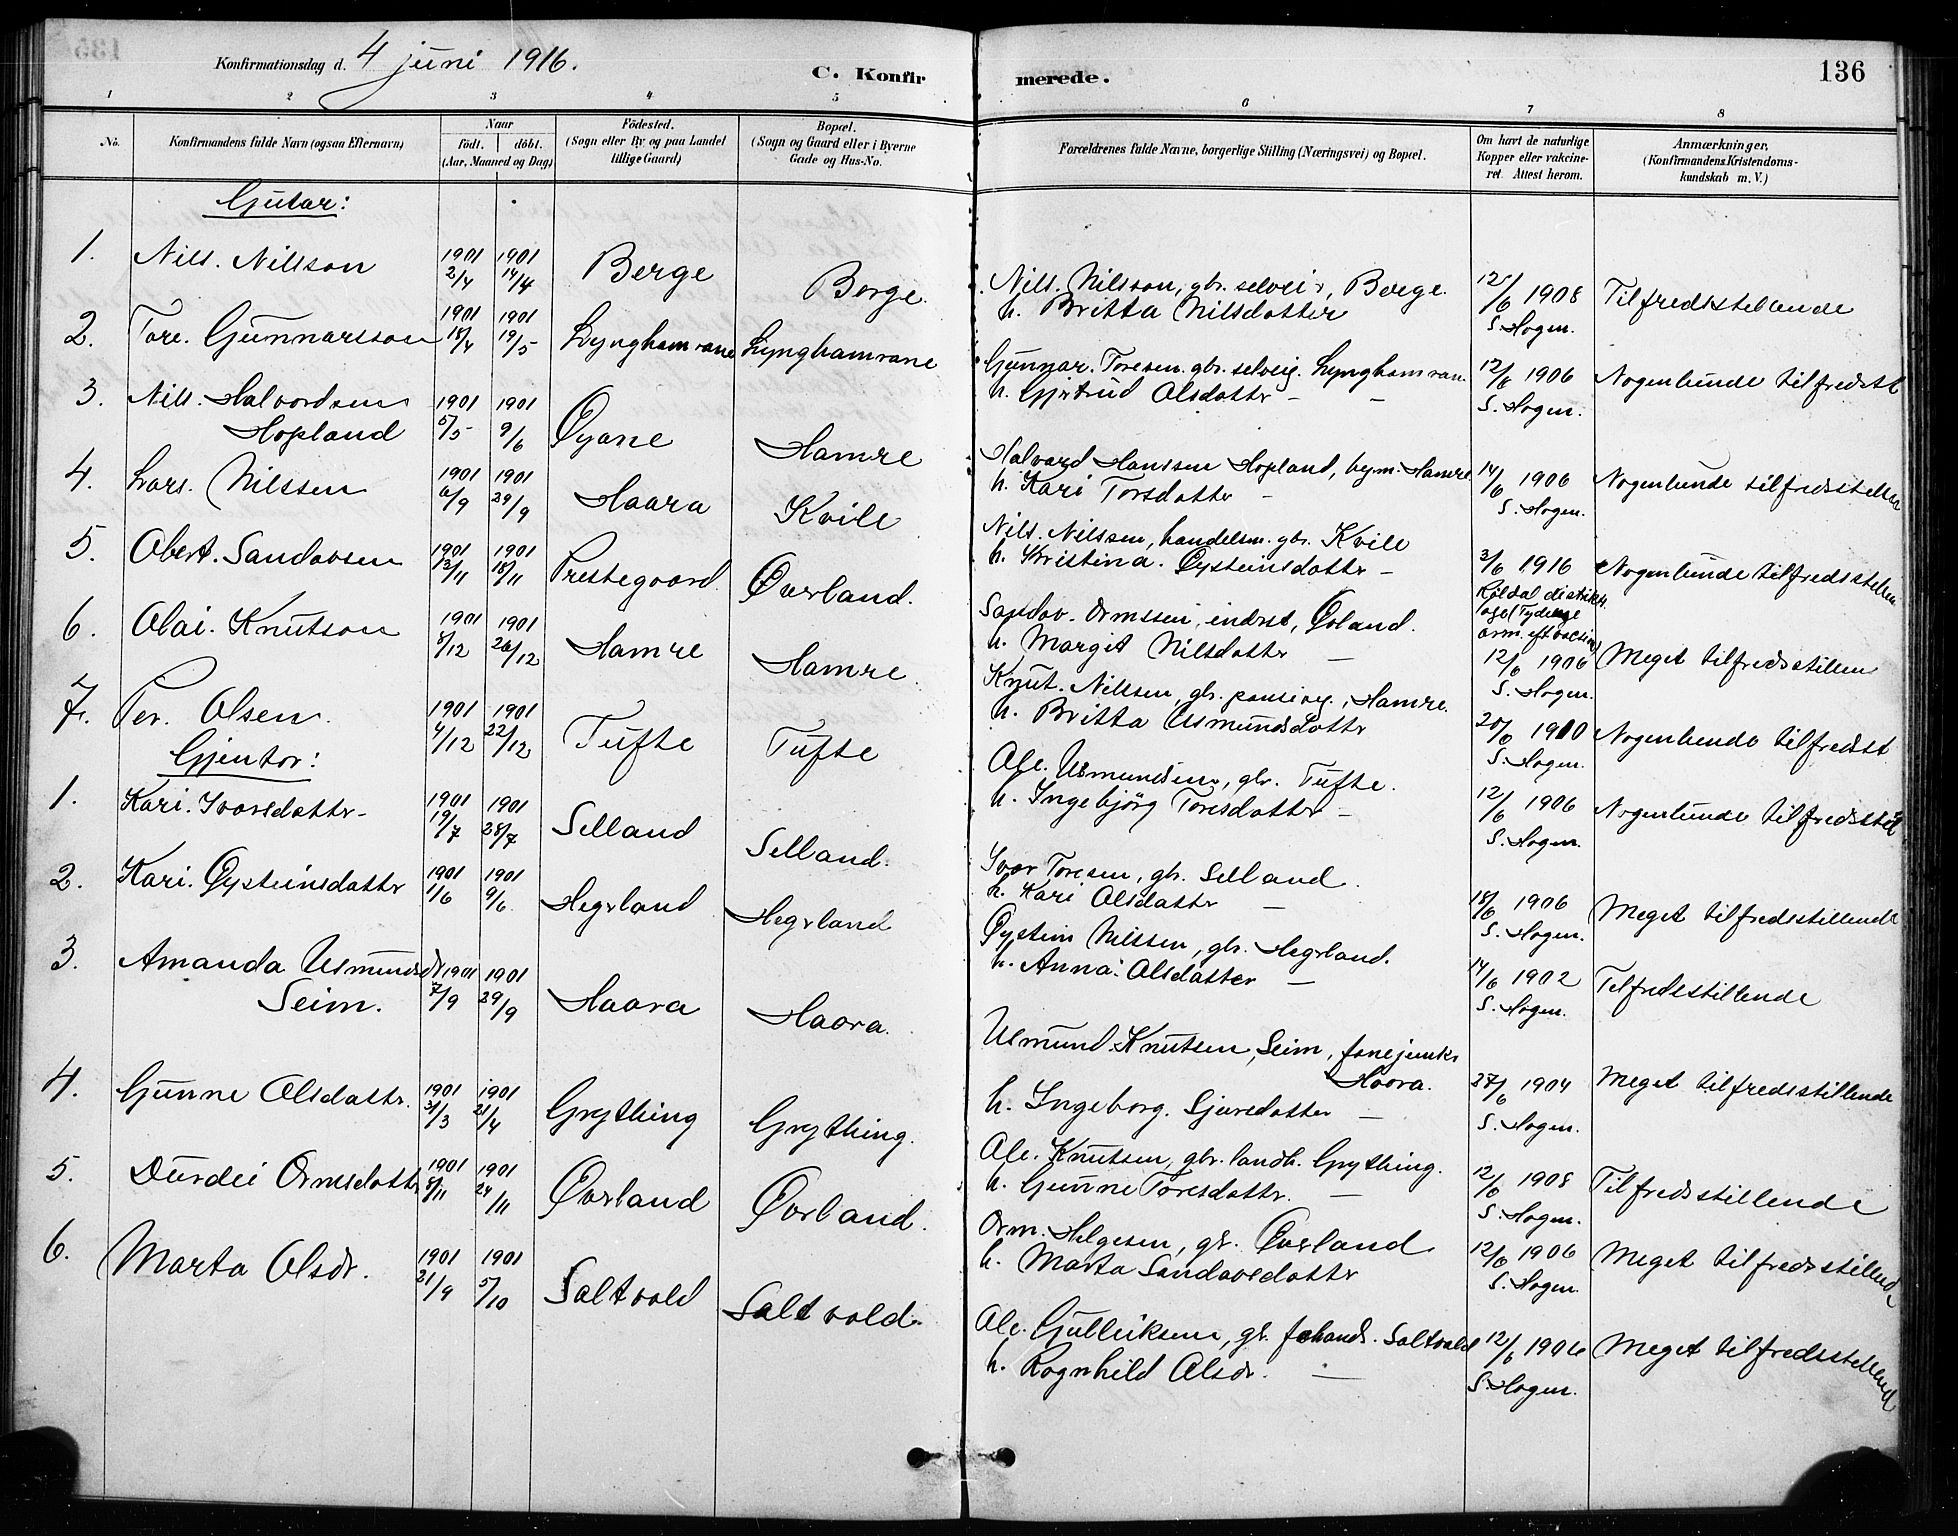 Konfirmationsdag d. 4 juni 1916.
C. Konfirmerede.
136
1 2 3 4 5 6 7 8
No.
Konfirmandens fulde Navn (ogsaa Efternavn)
Naar
født. døbt.
(Aar, Maaned og Dag)
Fødested.
(Sogn eller By og paa Landet
tillige Gaard)
Bopæl.
(Sogn og Gaard eller i Byerne
Gade og Hus-No.
Forældrenes fulde Navne, borgerlige Stilling (Næringsvei) og Bopæl.
Om havt de naturlige
Kopper eller vakcine-
ret. Attest herom.
Anmærkninger.
(Konfirmandens Kristendoms-
kundskab m. V.)
Gutar:
1. Nils. Nilsson 1901 2/4 1901 14/4 Berge Berge.
Nils. Nilsson, gbr. selvei., Berge.
h. Britta Nilsdotter
12/6 1908
S. Hogen.
Tilfredsstellende
2. Tore. Gunnarsson 1901 18/4 1901 19/5 Lynghamrane Lynghamrane
Gunnar. Toresen. gbr. selveig. Lynghamran.
h. Gjertrud Olsdottr – –
12/6 1906
S. Hogen.
Nogenlunde tilfredst
3. Nils. Halvordsen
Hopland
1901 5/5 1901 9/6 Øyane Hamre
Halvard Hanssen Hopland, Hamre
h. Kari Torsdottr –
14/6 1906
S. Hogen.
Nogenlunde tilfredsstellen
4. Lars. Nilssen 1901 6/9 1901 29/9 Haara Kvile
Nils. Nilssen, handelsm. gbr. Kvile
h. Kristina. Øysteinsdottr –
3/6 1916
Røldal distrikts
Nogenlunde tilfredsstellen
5. Obert. Sandovsen 1901 1901 18/11 Prestegaard Øvrland.
Sandov. Ormssen, inderst, Øvland.
h. Margit Nilsdottr –
12/6 1906
S. Hogen.
Meget tilfredsstillen
6. Olai. Knutson 1901 8/12 1901 26/12 Hamre Hamre.
Knut. Nilssen, gbr. , Hamre.
h. Britta Asmundsdottr
20/6 1910
S. Hogen.
Nogenlunde tilfredst
7. Per. Olsen. 1901 4/12 1901 22/12 Tufte Tufte
Ole. Asmundsen, gbr. Tufte.
h. Ingebjörg Toresdottr –
12/6 1906
S. Hogen.
Nogenlunde tilfredsstil
Gjentor:
1. Kari. Ivarsdottr- 1901 19/7 1901 28/7 Selland Selland.
Ivar Toresen, gbr. Selland.
h. Kari Olsdottr –
18/6 1906
S. Hogen.
Meget tilfredsstillende
2. Kari. Øysteinsdottr 1901 1/6 1901 9/6 Hegrland Hegrland
Øystein Nilssen, gbr. Hegrland.
h. Anna. Olsdotter –
14/6 1902
S. Hogen.
Tilfredsstillende
3. Amanda Asmundsdr
Seim.
1901 7/9 1901 29/9 Haara Haara.
Asmund. Knutsen, Seim, fanejunkr
Haara.
h. Ingeborg. Sjursdotter –
27/6 1904
S. Hogen.
Meget tilfredsstillende
4. Gunne Olsdottr. 1901 31/3 1901 21/4 Grything Grything.
Ole. Knutsen, gbr. landh. Grything.
h. Gunne Toresdottr. –
12/6 1908
S. Hogen.
Tilfredsstillende
5. Durdei Ormsdottr 1901 8/11 1901 24/11 Øvrland Øvrland.
Orm. Helgesen, gb. Øvrland
h. Marta Sandovsdottr
12/6 1906
S. Hogen.
Meget tilfredsstillende
6. Marta Olsdr. 1901 21/9 1901 5/10 Saltvold Saltvold.
Ole. Gulleiksen, gb. Saltvold
h. Rognhild Olsdr. –
12/6 1906
S. Hogen.
Meget tilfredsstellend